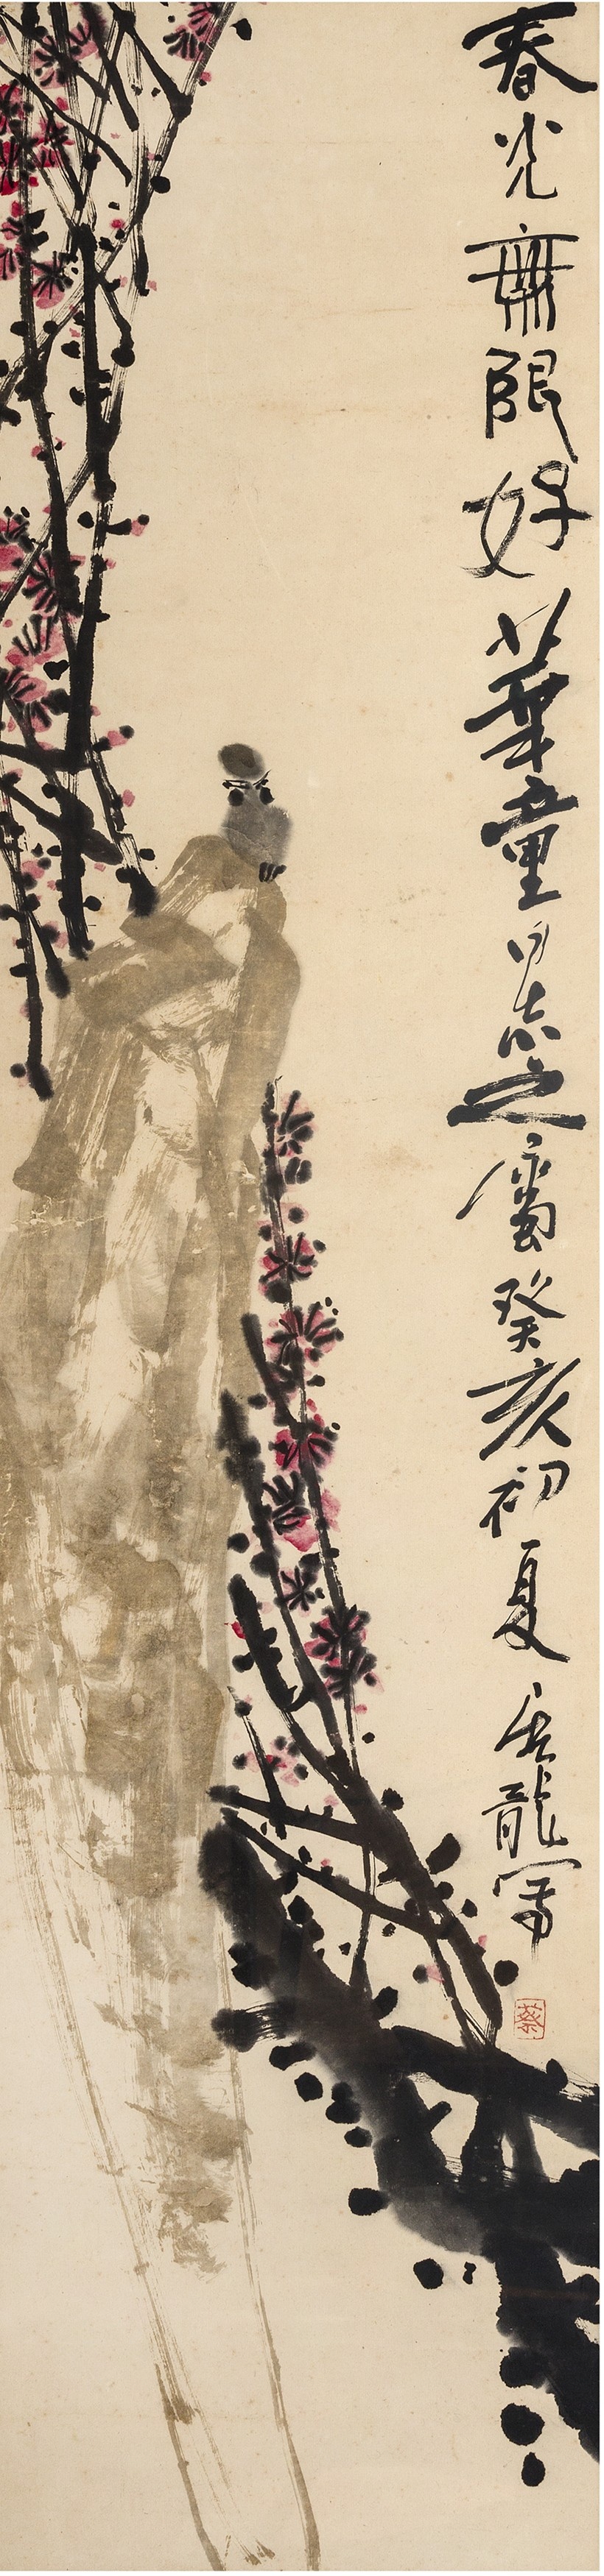 春光無限好華童同志之屬癸亥初夏龍寫
蔡